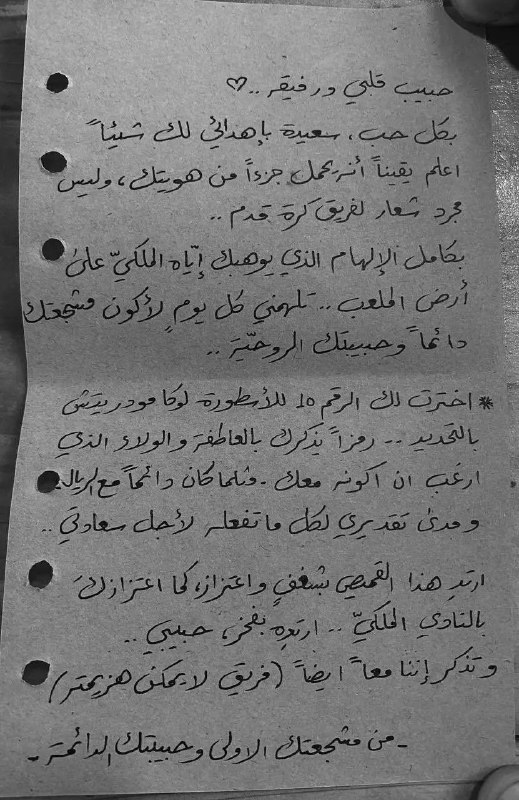 حبيب قلبي ورفيقه .. ♡
بكل حب، سعيدة بإهدائي لك شيئاً
اعلم يقيناً أنه يحمل جزءاً من هويتك، وليس
مجرد شعار لفريق كرة قدم ..
بكامل الإلهام الذي يوهبك إيّاه الملكيّ على
أرض الملعب .. تلهمني كل يومٍ لأكون مشجعتك
دائماً وحبيبتك الروحيّة ..
* اخترت لك الرقم 10 للأسطورة لوكا مودريتش
بالتحديد .. رمزاً يذكرك بالعاطفة والولاء الذي
ارغب ان اكونه معك. مثلما كان دائماً مع الريال.
ومدى تقديري لكل ما تفعله لأجل سعادتي ..
ارتدِ هذا القميص بشغفٍ واعتزاز، كما اعتزازكَ
بالنادي الملكيّ .. ارتدِه بفخر، حبيبي ..
وتذكر إننا معاً ايضاً (فريق لا يمكن هزيمته)
- من مشجعتك الاولى وحبيبتك الدائمة -